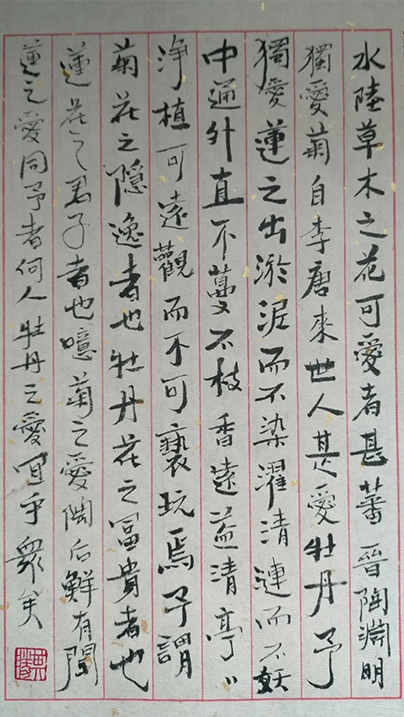 水陸草木之花可愛者甚蕃晉陶淵明
獨愛菊自李唐來世人甚愛牡丹予
獨愛蓮之出淤泥而不染濯清漣而不妖
中通外直不蔓不枝香遠益清亭〃
淨植可遠觀而不可褻玩焉予謂
菊花之隱逸者也牡丹花之冨貴者也
蓮花之君子者也噫菊之愛陶后鮮有聞
蓮之愛同予者何人牡丹之愛宜乎眾矣